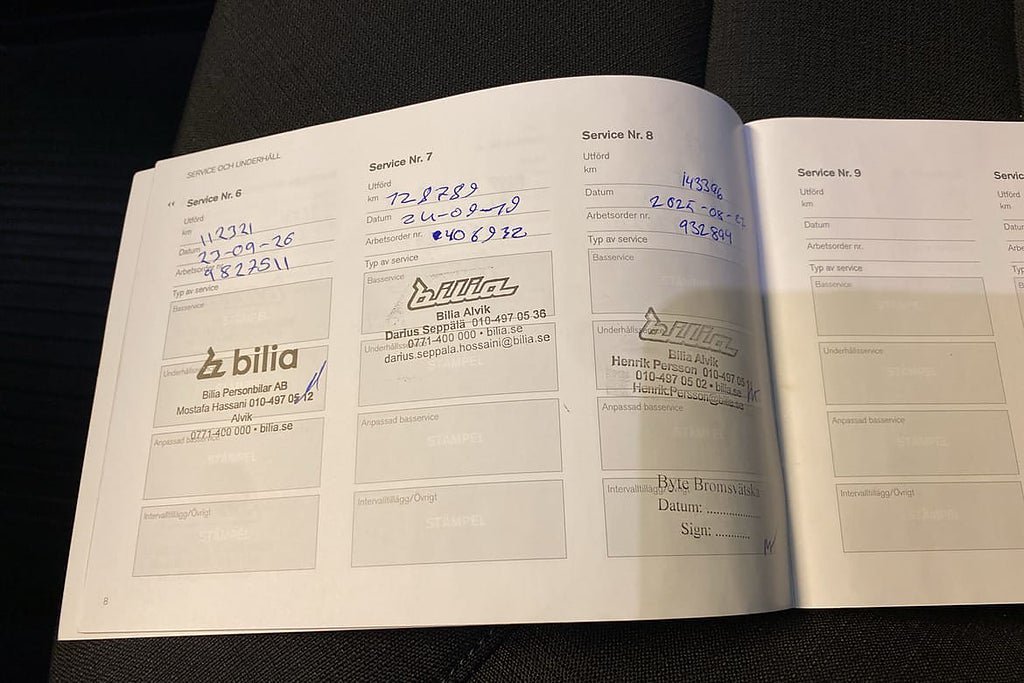 SERVICE OCH UNDERHÅLL
‹‹ Service Nr. 6
Utförd
km 112321
Datum 23-09-26
Arbetsorder nr. 9827511
Typ av service
Basservice
STÄMPEL
Underhållsservice
bilia
Bilia Personbilar AB
Mostafa Hassani 010-497 05 12
Alvik
0771-400 000 • bilia.se
Anpassad basservice
STÄMPEL
Intervalltillägg/Övrigt
STÄMPEL
8
Service Nr. 7
Utförd
km 128789
Datum 24-09-19
Arbetsorder nr. 406932
Typ av service
Basservice
bilia
Bilia Alvik
Darius Seppälä 010-497 05 36
0771-400 000 • bilia.se
Underhållsservice
darius.seppala.hossaini@bilia.se
STÄMPEL
Anpassad basservice
STÄMPEL
Intervalltillägg/Övrigt
STÄMPEL
Service Nr. 8
Utförd
km 143396
Datum 2025-08-
Arbetsorder nr. 932894
Typ av service
Basservice
Underhållsservice
bilia
Bilia Alvik
Henrik Persson 010-497 05
010-497 05 02 • bilia.se
Henrik.Persson@bilia.se
Anpassad basservice
STÄMPEL
Intervalltillägg/Övrigt
Byte Bromsvätska
Datum: ..............
Sign: ............
Service Nr. 9
Utförd
km
Datum
Arbetsorder nr.
Typ av service
Basservice
STÄMPEL
Underhållsservice
STÄMPEL
Anpassad basservice
STÄMPEL
Intervalltillägg/Övrigt
STÄMPEL
Servic
Utförd
km
Datum
Arbe
Typ